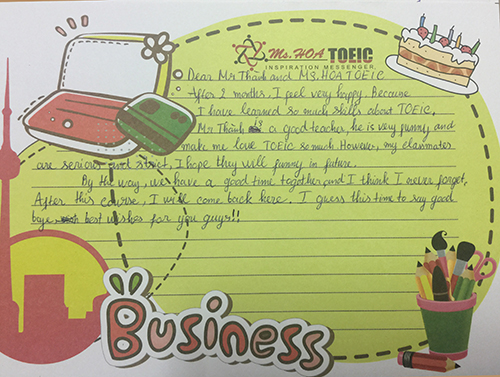 Ms. HOA TOEIC
INSPIRATION MESSENGER
Dear Mr Thành and MS. HOA TOEIC
After 2 months, I feel very happy. Because
I have learned so much skills about TOEIC.
Mr Thành is a good teacher, he is very funny and
make me love TOEIC so much However, my classmates
are seriors and strict, I hope they will funny in future.
By the way, we have a good time together and I think I never forget,
After this course, I will come back here. I guess this time to say good
bye. best wishes for you guys!!
Business